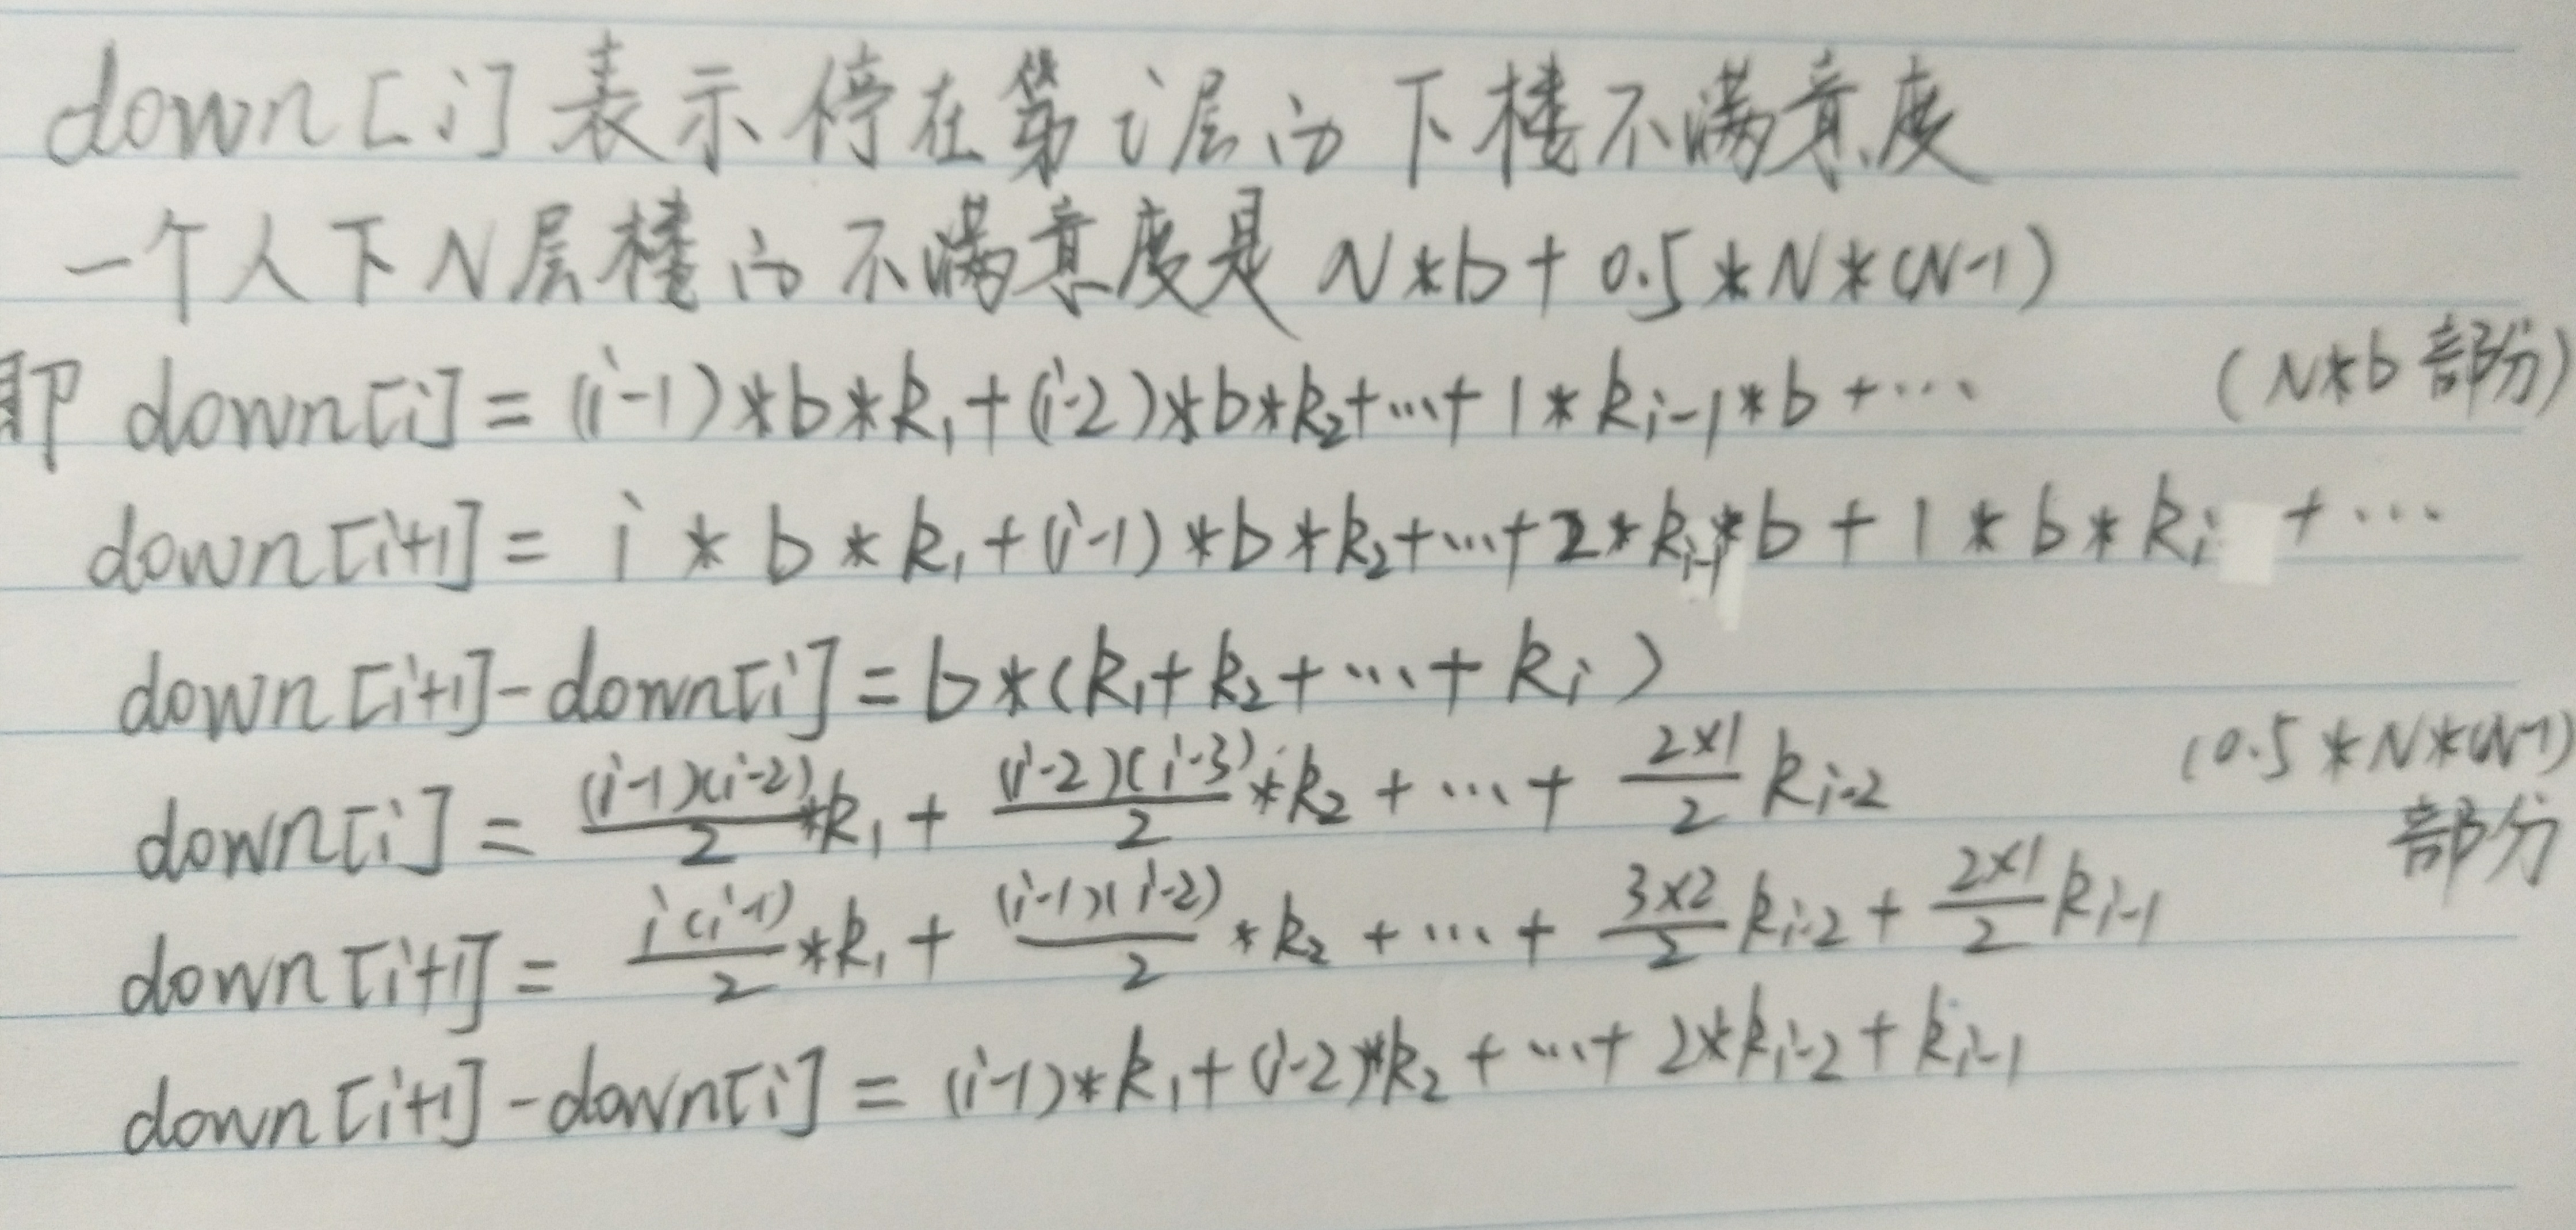 down[i]表示停在第i层的下楼不满意度
一个人下N层楼的不满意度是 N*b+0.5*N*(N-1)
即 down[i]=(i-1)*b*k₁+(i-2)*b*k₂+…+1*kᵢ₋₁*b+… (N*b部分)
down[i+1]= i*b*k₁+(i-1)*b*k₂+…+2*kᵢ₋₁*b+1*b*kᵢ +…
down[i+1]-down[i]=b*(k₁+k₂+…+kᵢ)
down[i]= (i-1)(i-2)/2*k₁+(i-2)(i-3)/2*k₂+…+2×1/2 kᵢ₋₂ (0.5*N*(N-1)部分
down[i+1]= i(i-1)/2*k₁+(i-1)(i-2)/2*k₂+…+3×2/2 kᵢ₋₂+2×1/2 kᵢ₋₁
down[i+1]-down[i]=(i-1)*k₁+(i-2)*k₂+…+2*kᵢ₋₂+kᵢ₋₁